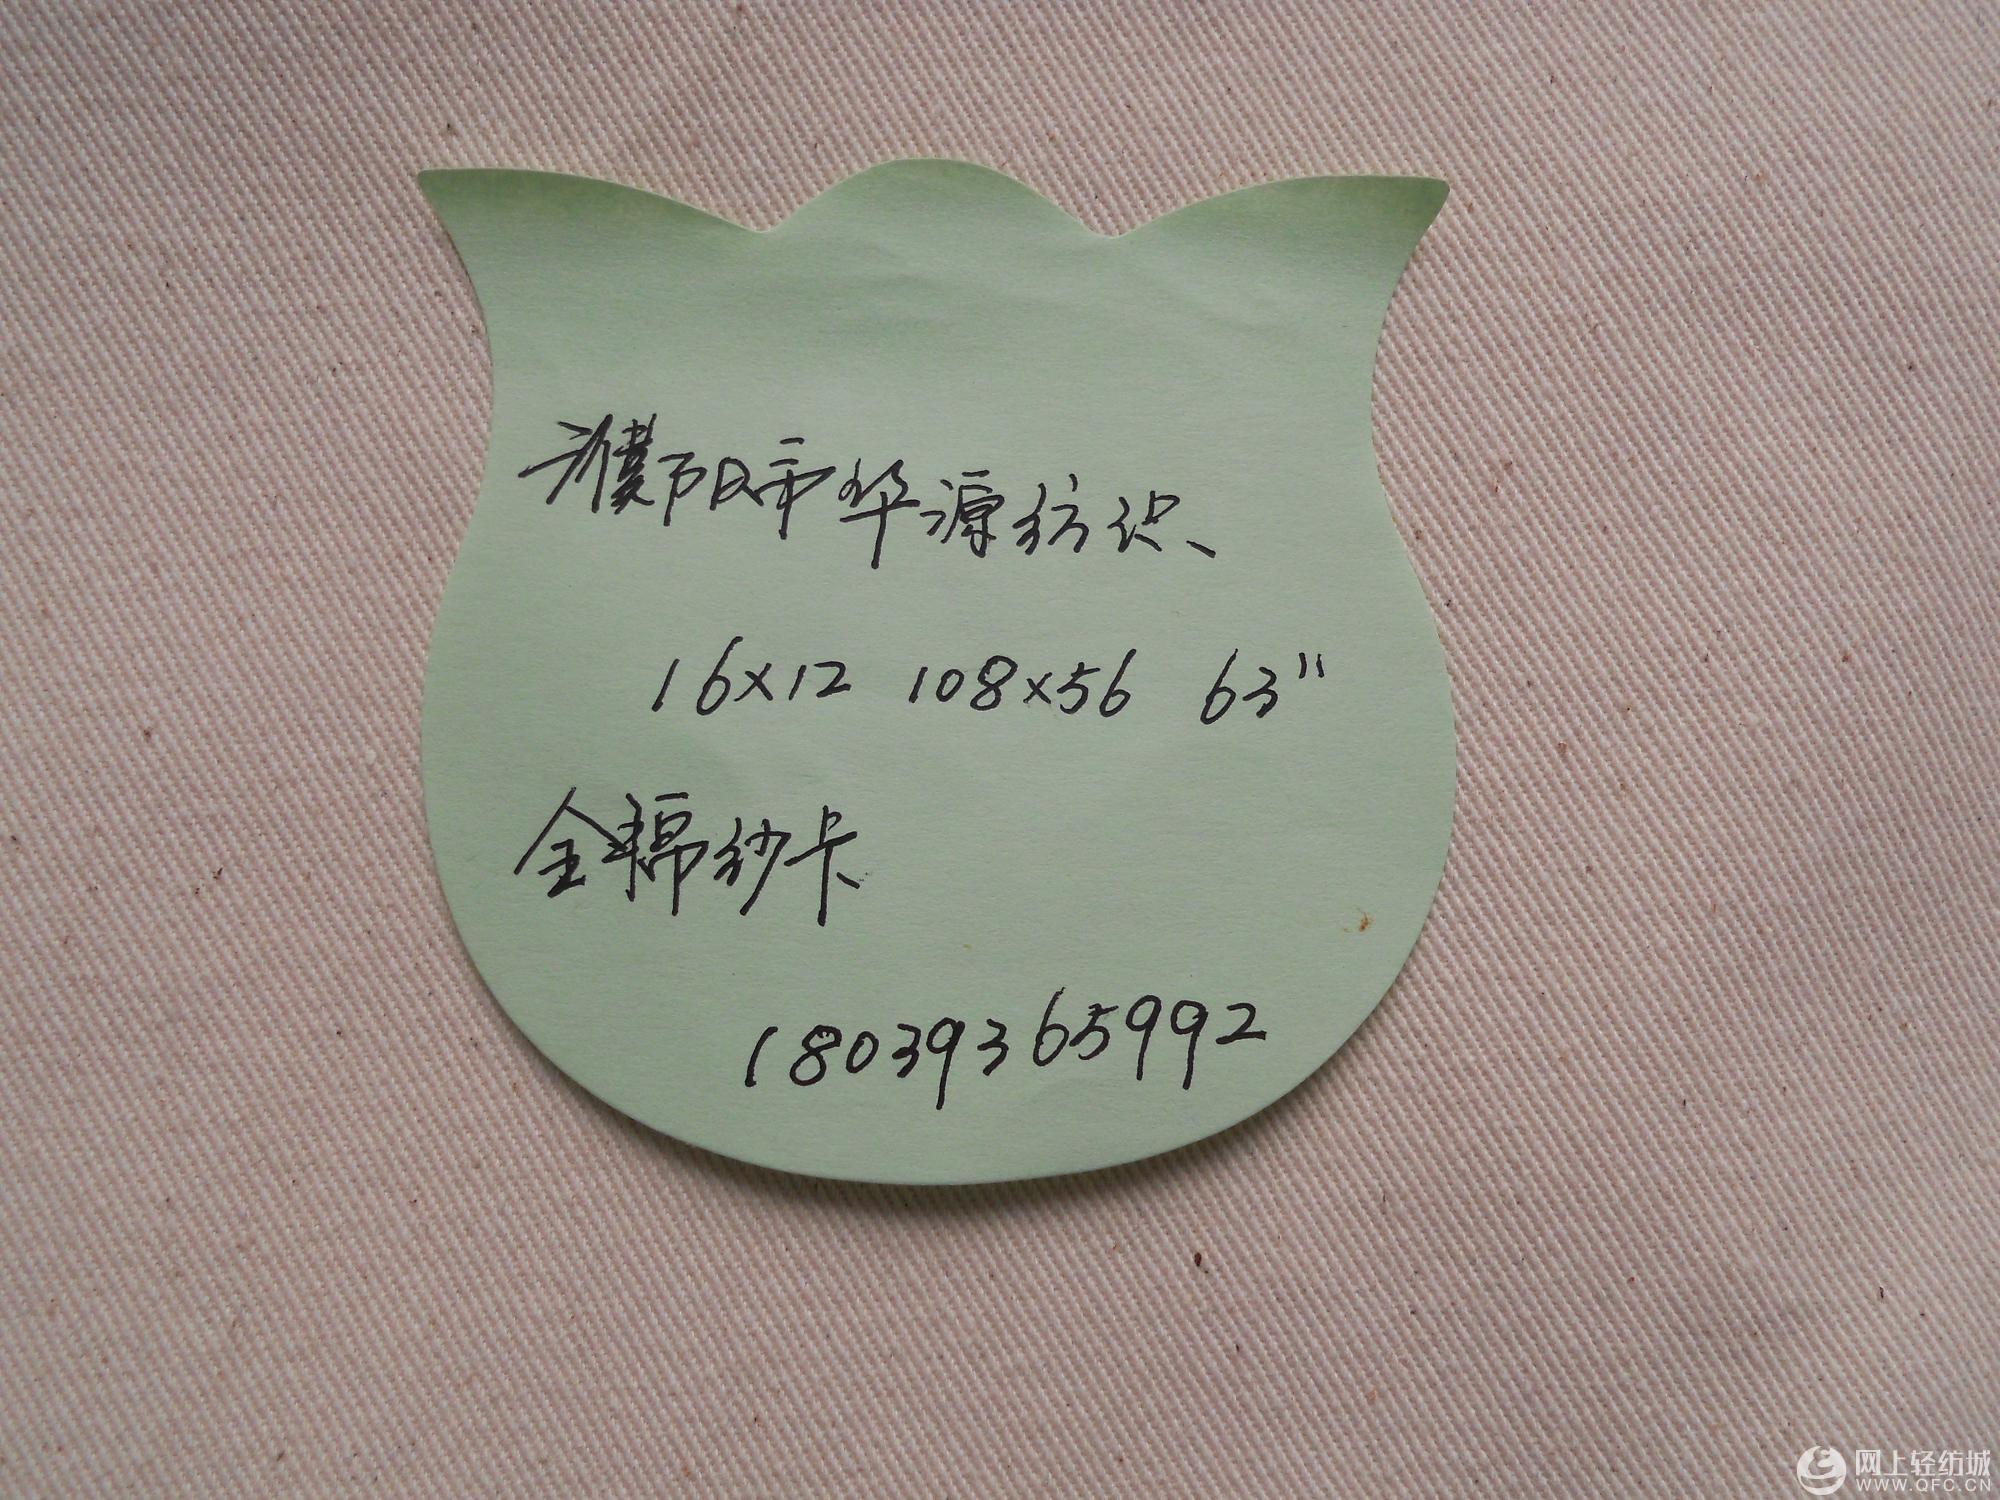 濮阳市华源纺织、
16×12 108×56 63"
全棉纱卡
18039365992
网上轻纺城
WWW.QFC.CN